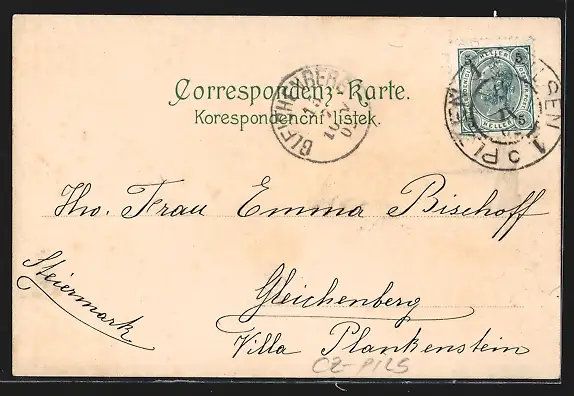 Correspondenz-Karte.
Korespondenční lístek.
5 HELLER 5
PLZEŇ 1 PILSEN
GLEICHENBERG
Frau Emma Bischoff
Gleichenberg
Villa Plankenstein
Steiermark
CZ-PILS